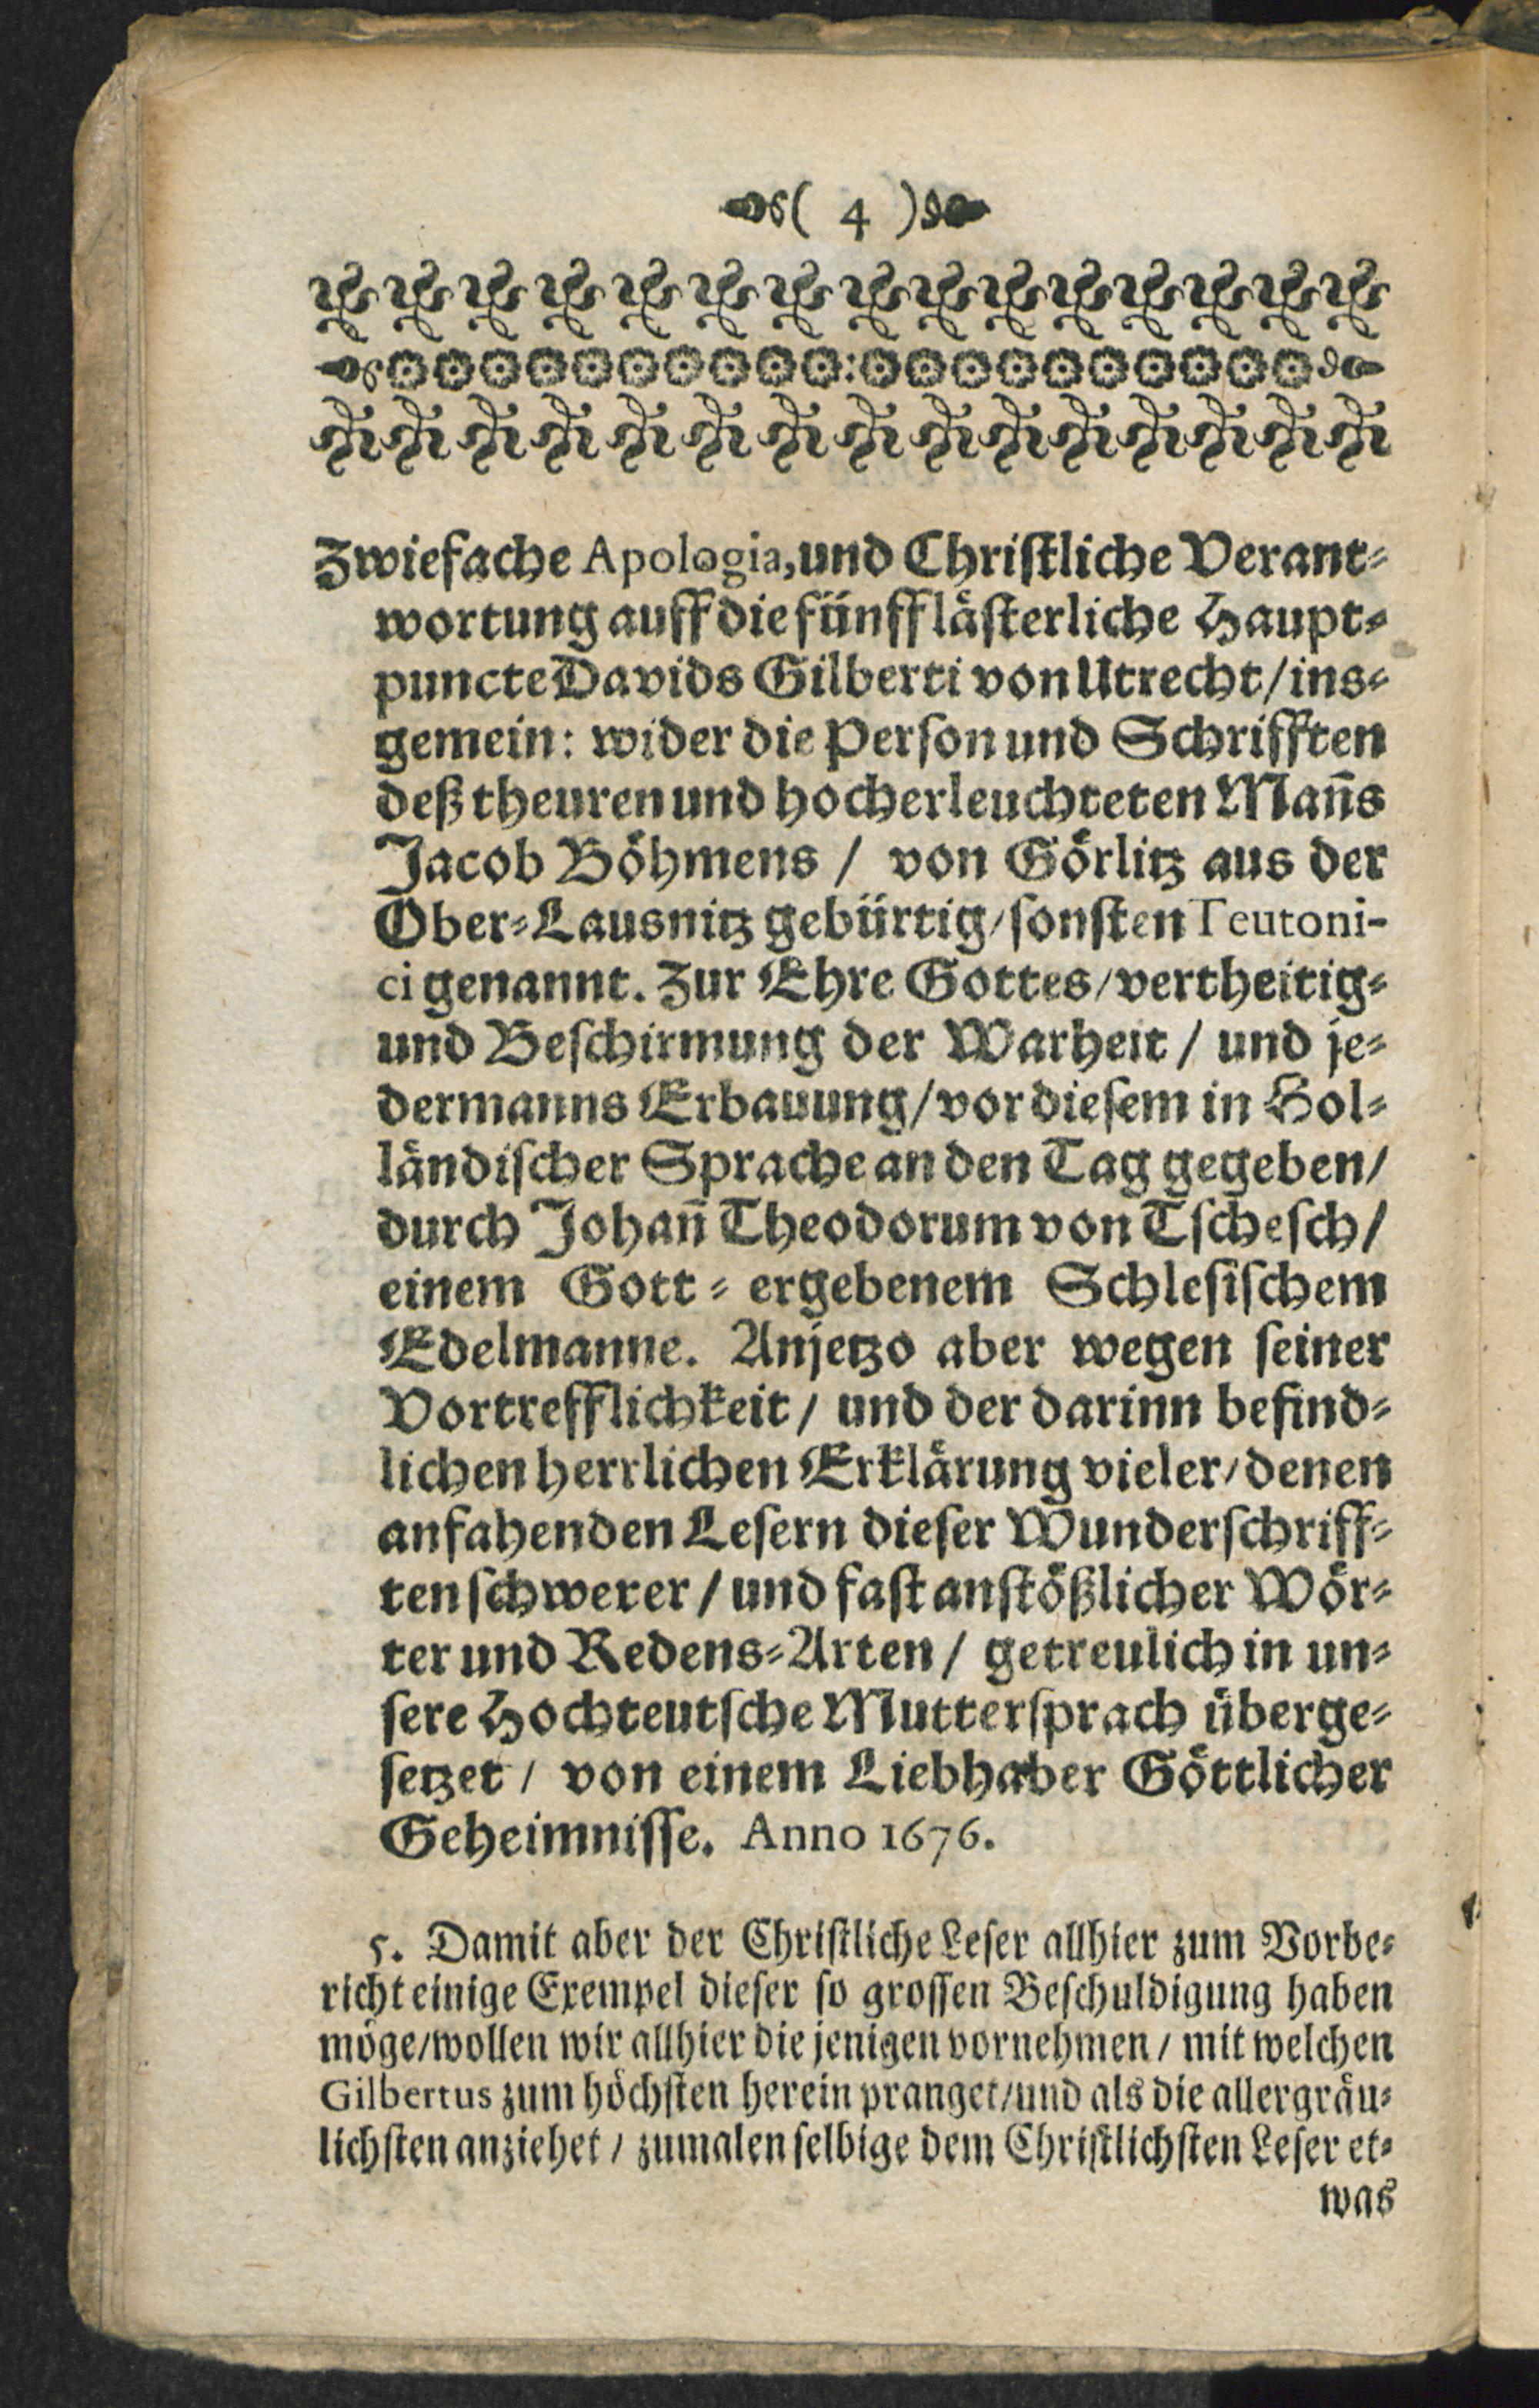 ( 4 )
Zwiefache Apologia, und Chriſtliche Verant⸗
wortung auff die fünff läſterliche Haupt⸗
puncte Davids Gilberti von Utrecht / ins⸗
gemein: wider die Perſon und Schrifften
deß theuren und hocherleuchteten Mañs
Jacob Böhmens / von Görlitz aus der
Ober⸗Lausnitz gebürtig / ſonſten Teutoni-
ci genannt. Zur Ehre Gottes / vertheitig⸗
und Beſchirmung der Warheit / und je⸗
dermanns Erbauung / vor dieſem in Hol⸗
ländiſcher Sprache an den Tag gegeben /
durch Johañ Theodorum von Tſcheſch /
einem Gott⸗ergebenem Schleſiſchem
Edelmanne. Anjetzo aber wegen ſeiner
Vortrefflichkeit / und der darinn befind⸗
lichen herrlichen Erklärung vieler / denen
anfahenden Leſern dieſer Wunderſchriff⸗
ten ſchwerer / und faſt anſtößlicher Wör⸗
ter und Redens⸗Arten / getreulich in un⸗
ſere Hochteutſche Mutterſprach überge⸗
ſetzet / von einem Liebhaber Göttlicher
Geheimniſſe. Anno 1676.
5. Damit aber der Chriſtliche Leſer allhier zum Vorbe⸗
richt einige Exempel dieſer ſo groſſen Beſchuldigung haben
möge / wollen wir allhier die jenigen vornehmen / mit welchen
Gilbertus zum höchſten herein pranget / und als die allergräu⸗
lichſten anziehet / zumalen ſelbige dem Chriſtlichſten Leſer et⸗
was